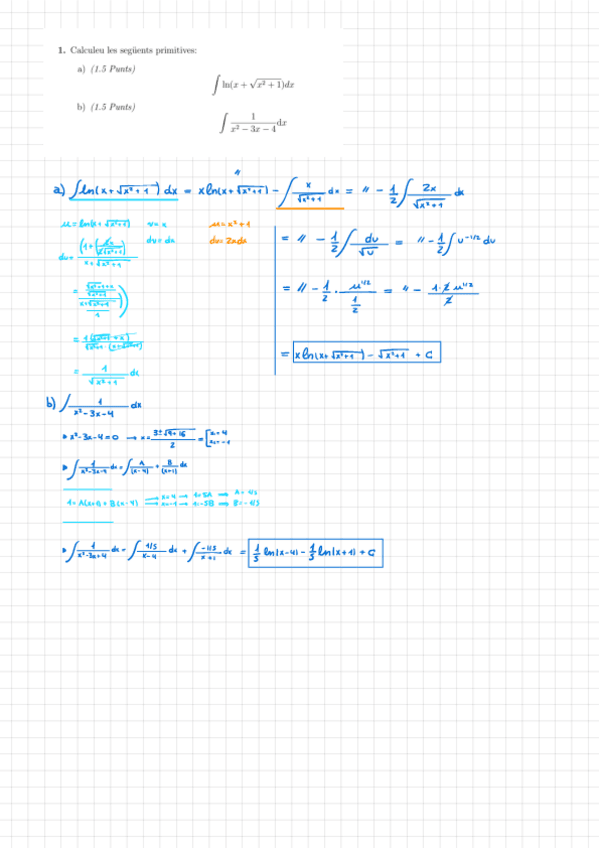 1. Calculeu les següents primitives:
a) (1.5 Punts)
∫ ln(x + √(x² + 1))dx
b) (1.5 Punts)
∫ 1/(x² − 3x − 4) dx
a) ∫ ln(x + √(x²+1)) dx = x ln(x + √(x²+1)) − ∫ x/√(x²+1) dx = " − 1/2 ∫ 2x/√(x²+1) dx
u = ln(x + √(x²+1)) v = x u = x²+1
dv = dx du = 2xdx
= " − 1/2 ∫ du/√u = " − 1/2 ∫ u^(-1/2) du
= " − 1/2 · u^(1/2)/(1/2) = " − 1·2 u^(1/2)/2
= 1/√(x²+1) dx
= x ln(x + √(x²+1)) − √(x²+1) + C
b) ∫ 1/(x²−3x−4) dx
x²−3x−4=0 → x = (3±√(9+16))/2 = [x=4 x=−1
∫ 1/(x²−3x−4) dx = ∫ A/(x−4) + B/(x+1) dx
1 = A(x+1) + B(x−4) x=4 → 1=5A → A=1/5
x=−1 → 1=−5B → B=−1/5
= ∫ 1/5/(x−4) dx + ∫ −1/5/(x+1) dx = 1/5 ln|x−4| − 1/5 ln|x+1| + C